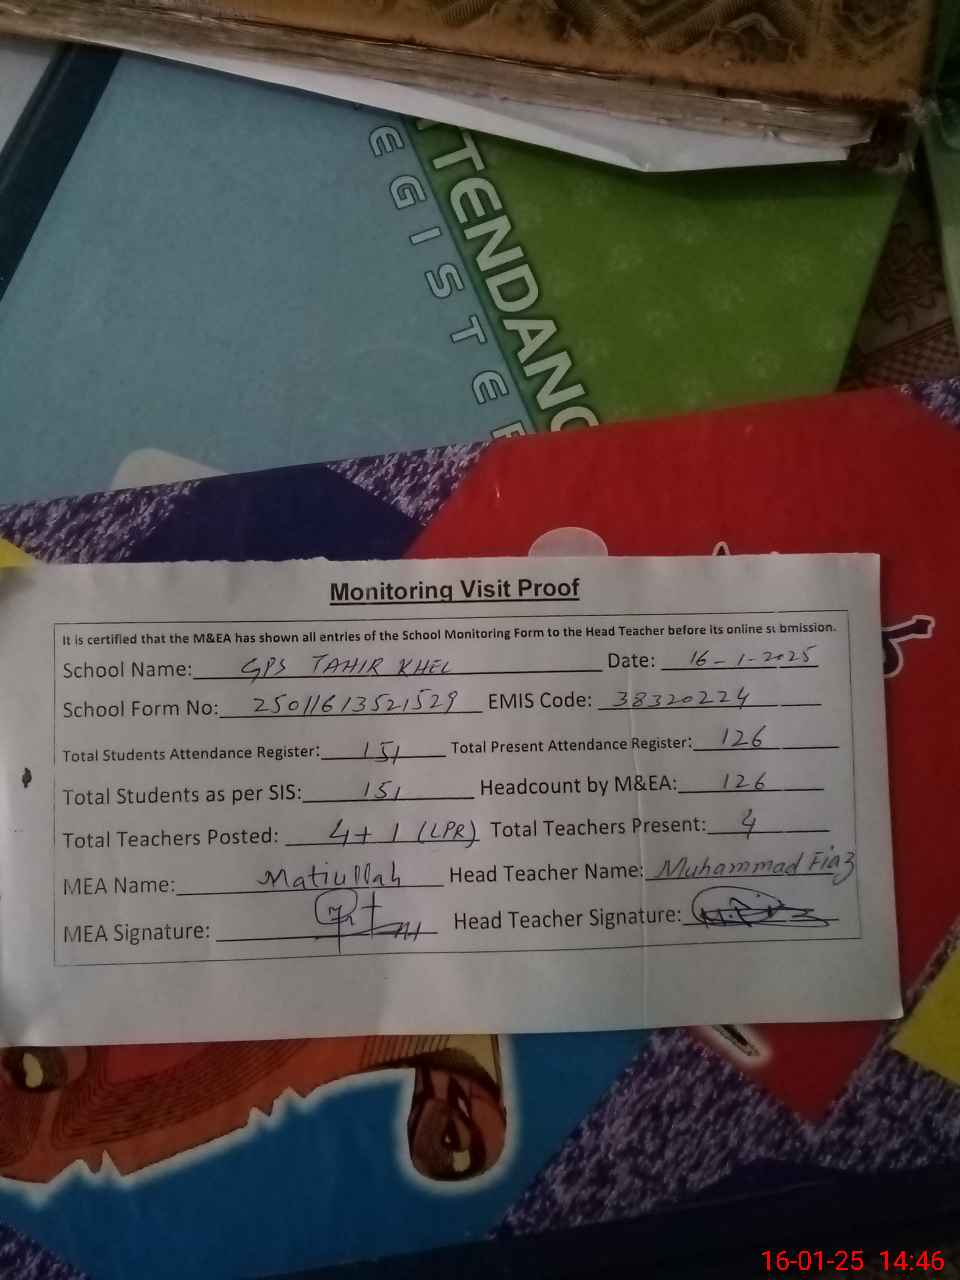 ATTENDANC
REGISTER
Monitoring Visit Proof
It is certified that the M&EA has shown all entries of the School Monitoring Form to the Head Teacher before its online submission.
School Name: GPS TAHIR KHEL Date: 16-1-2025
School Form No: 25011613521529 EMIS Code: 38320224
Total Students Attendance Register: 151 Total Present Attendance Register: 126
Total Students as per SIS: 151 Headcount by M&EA: 126
Total Teachers Posted: 4+1 (LPR) Total Teachers Present: 4
MEA Name: Matiullah Head Teacher Name: Muhammad Fiaz
MEA Signature: Head Teacher Signature:
16-01-25 14:46